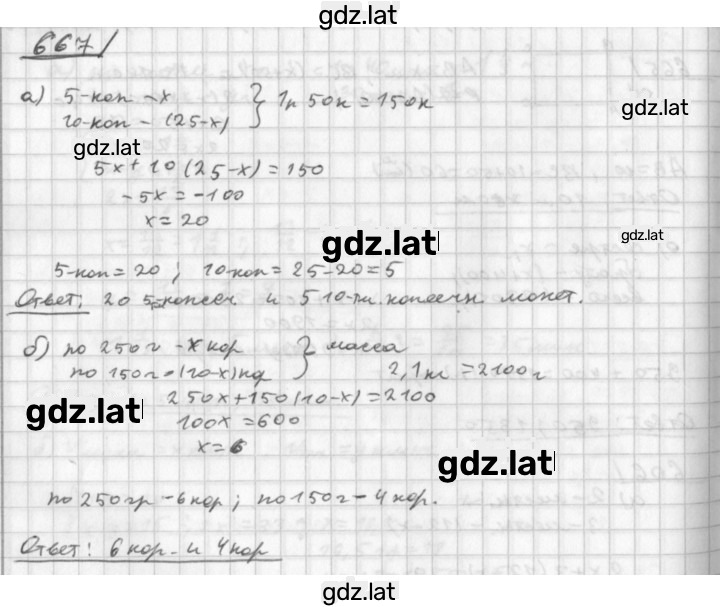 gdz.lat
667/
а) 5-коп – x } 1р 50к = 150к
10-коп – (25-x)
gdz.lat
5x + 10(25-x) = 150
-5x = -100
x = 20
gdz.lat
gdz.lat
5-коп = 20; 10-коп = 25-20=5
Ответ: 20 5-копееч и 5 10-ти копеечн монет.
б) по 250г – x кор } масса
по 150г – (10-x) кор 2,1кг = 2100г
250x + 150(10-x) = 2100
gdz.lat
100x = 600
x = 6
gdz.lat
по 250гр – 6 кор; по 150г – 4 кор.
Ответ: 6 кор. и 4 кор
gdz.lat